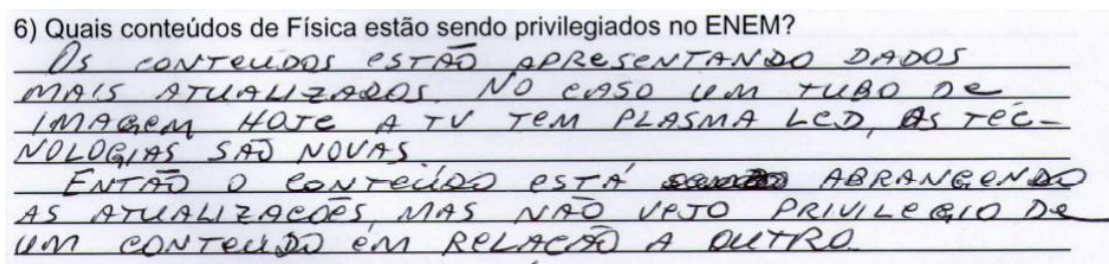 6) Quais conteúdos de Física estão sendo privilegiados no ENEM?
OS CONTEUDOS ESTÃO APRESENTANDO DADOS
MAIS ATUALIZADOS. NO CASO UM TUBO DE
IMAGEM HOJE A TV TEM PLASMA LED, AS TEC-
NOLOGIAS SÃO NOVAS.
ENTÃO O CONTEÚDO ESTÁ ABRANGENDO
AS ATUALIZACOES, MAS NÃO VEJO PRIVILEGIO DE
UM CONTEUDO EM RELACÃO A OUTRO.